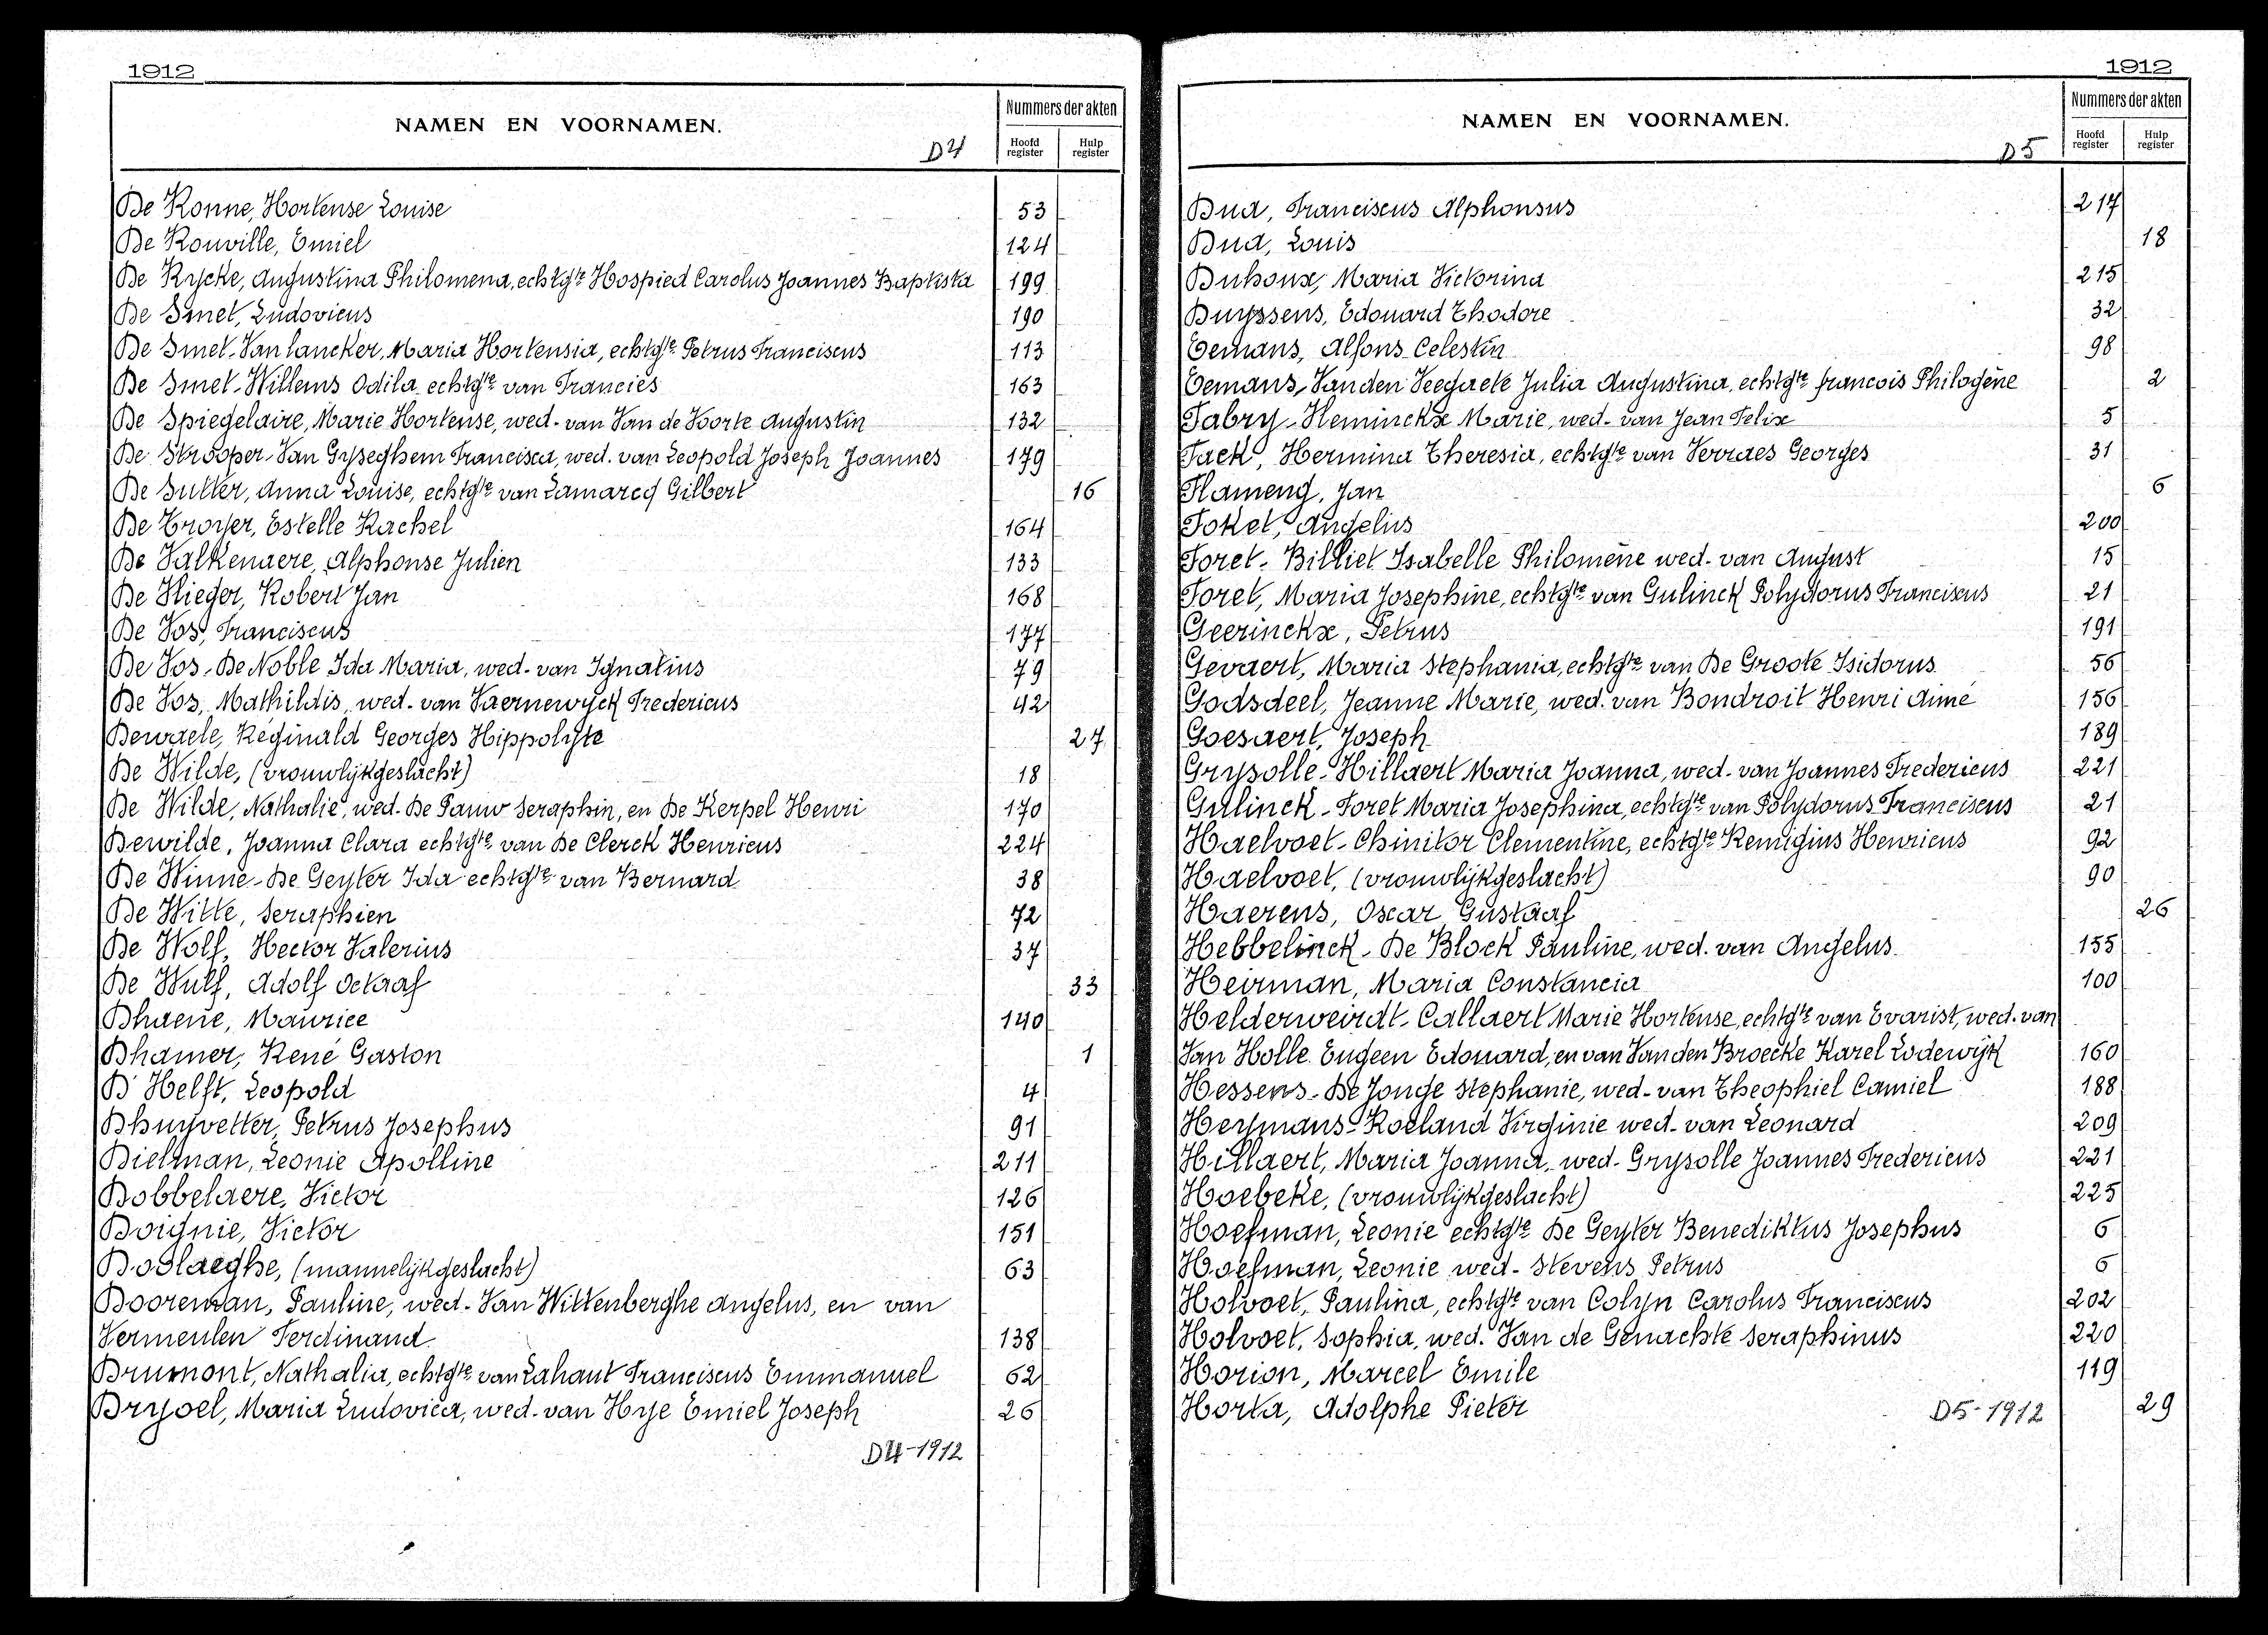 1912
NAMEN EN VOORNAMEN.
D4
Nummers der akten
Hoofd register
Hulp register
De Ronne, Hortense Louise 53
De Rouville, Emiel 124
De Rycke, Augustina Philomena, echtgte Hospied Carolus Joannes Baptista 199
De Smet, Ludovicus 190
De Smet-Van lancker, Maria Hortensia, echtgte Petrus Franciscus 113
De Smet-Willems Odila, echtgte van Francies 163
De Spiegelaire, Marie Hortense, wed. van Van de Voorte Augustin 132
De Strooper-Van Gyseghem Francisca, wed. van Leopold Joseph Joannes 179
De Sutter, Anna Louise, echtgte van Lamarcq Gilbert 16
De Troyer, Estelle Rachel 164
De Valkenaere, Alphonse Julien 133
De Vlieger, Robert Jan 168
De Vos, Franciscus 177
De Vos-De Noble Ida Maria, wed. van Ignatius 79
De Vos, Mathildis, wed. van Vaernewyck Fredericus 42
Dewaele, Réginald Georges Hippolyte 27
De Wilde, (vrouwlijkgeslacht) 18
De Wilde, Nathalie, wed. De Pauw Seraphin, en De Kerpel Henri 170
Dewilde, Joanna Clara echtgte van De Clerck Henricus 224
De Winne-De Geyter Ida echtgte van Bernard 38
De Witte, Seraphien 72
De Wolf, Hector Valerius 37
De Wulf, Adolf Octaaf 33
Dhaene, Maurice 140
Dhamer, René Gaston 1
D'Helft, Leopold 4
Dhuyvetter, Petrus Josephus 91
Dielman, Leonie Apolline 211
Dobbelaere, Victor 126
Doignie, Victor 151
Doolaeghe, (mannelijkgeslacht) 63
Dooreman, Pauline, wed. Van Wittenberghe Angelus, en van
Vermeulen Ferdinand 138
Drumont, Nathalia, echtgte van Lahaut Franciscus Emmanuel 62
Dryoel, Maria Ludovica, wed. van Hye Emiel Joseph 26
D4-1912
1912
NAMEN EN VOORNAMEN.
D5
Nummers der akten
Hoofd register
Hulp register
Dua, Franciscus Alphonsus 217
Dua, Louis 18
Duhoux, Maria Victorina 215
Duyssens, Edouard Thodore 32
Eemans, Alfons Celestin 98
Eemans, Vanden Veegaete Julia Augustina, echtgte francois Philogène 2
Fabry-Heminckx Marie, wed. van Jean Felix 5
Fack, Hermina Theresia, echtgte van Verraes Georges 31
Flameng, Jan 6
Foket, Angelius 200
Foret-Billiet Isabelle Philomène wed. van August 15
Foret, Maria Josephine, echtgte van Gulinck Polydorus Franciscus 21
Geerinckx, Petrus 191
Gevaert, Maria Stephania, echtgte van De Groote Isidorus 56
Godsdeel, Jeanne Marie, wed. van Bondroit Henri Aimé 156
Goesaert, Joseph 189
Grysolle-Hillaert Maria Joanna, wed. van Joannes Fredericus 221
Gulinck-Foret Maria Josephina, echtgte van Polydorus Franciscus 21
Haelvoet-Chinitor Clementine, echtgte Remigius Henricus 92
Haelvoet, (vrouwlijkgeslacht) 90
Haerens, Oscar Gustaaf 26
Hebbelinck-De Block Pauline, wed. van Angelus 155
Heirman, Maria Constancia 100
Helderweirdt-Callaert Marie Hortense, echtgte van Evarist, wed. van
Van Holle Eugeen Edouard, en van Van den Broecke Karel Lodewijk 160
Hessens-De Jonge Stephanie, wed. van Theophiel Camiel 188
Heymans-Roeland Virginie wed. van Leonard 209
Hillaert, Maria Joanna, wed. Grysolle Joannes Fredericus 221
Hoebeke, (vrouwlijkgeslacht) 225
Hoefman, Leonie echtgte De Geyter Benediktus Josephus 6
Hoefman, Leonie wed. Stevens Petrus 6
Holvoet, Paulina, echtgte van Colyn Carolus Franciscus 202
Holvoet, Sophia, wed. Van de Genachte Seraphinus 220
Horion, Marcel Emile 119
Horta, Adolphe Pieter 29
D5-1912